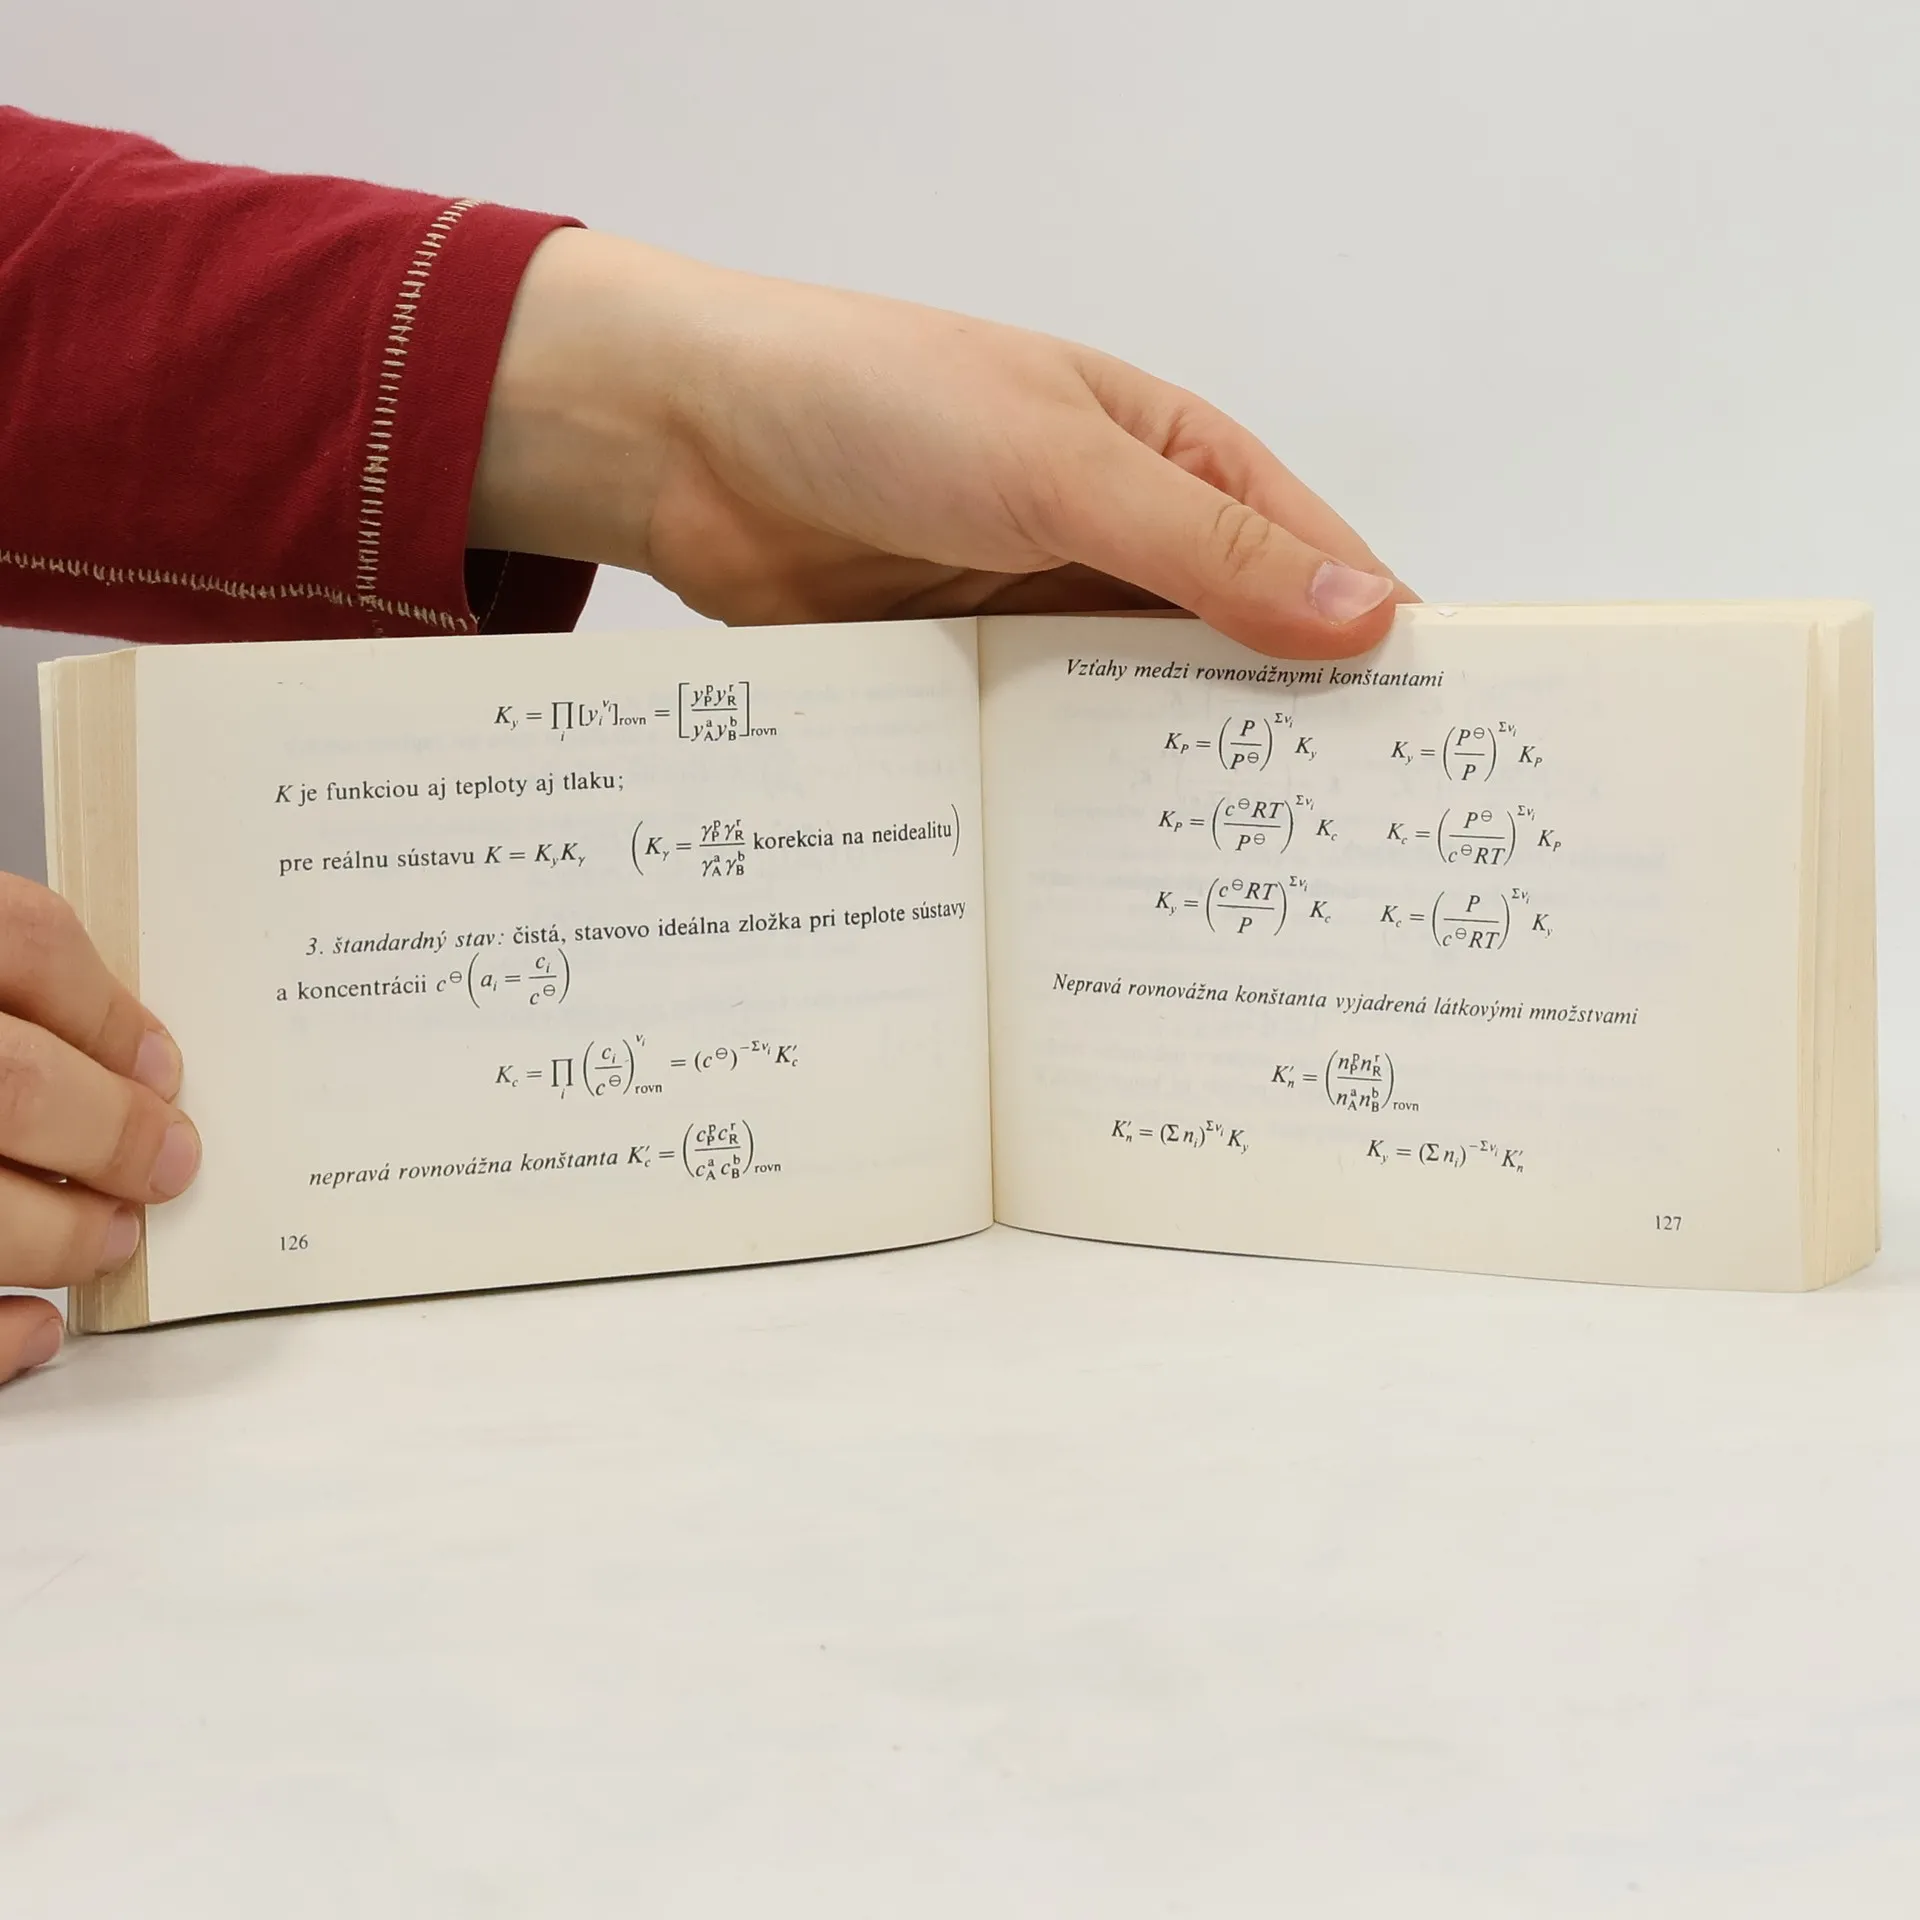 K_y = ∏_i [y_i^{ν_i}]_rovn = [y_P^p y_R^r / y_A^a y_B^b]_rovn
K je funkciou aj teploty aj tlaku;
pre reálnu sústavu K = K_y K_γ (K_γ = γ_P^p γ_R^r / γ_A^a γ_B^b korekcia na neidealitu)
3. štandardný stav: čistá, stavovo ideálna zložka pri teplote sústavy
a koncentrácii c^⊖ (a_i = c_i / c^⊖)
K_c = ∏_i (c_i / c^⊖)^{ν_i}_rovn = (c^⊖)^{−Σν_i} K'_c
nepravá rovnovážna konštanta K'_c = (c_P^p c_R^r / c_A^a c_B^b)_rovn
126
Vzťahy medzi rovnovážnymi konštantami
K_P = (P / P^⊖)^{Σν_i} K_y K_y = (P^⊖ / P)^{Σν_i} K_P
K_P = (c^⊖RT / P^⊖)^{Σν_i} K_c K_c = (P^⊖ / c^⊖RT)^{Σν_i} K_P
K_y = (c^⊖RT / P)^{Σν_i} K_c K_c = (P / c^⊖RT)^{Σν_i} K_y
Nepravá rovnovážna konštanta vyjadrená látkovými množstvami
K'_n = (n_P^p n_R^r / n_A^a n_B^b)_rovn
K'_n = (Σ n_i)^{Σν_i} K_y K_y = (Σ n_i)^{−Σν_i} K'_n
127